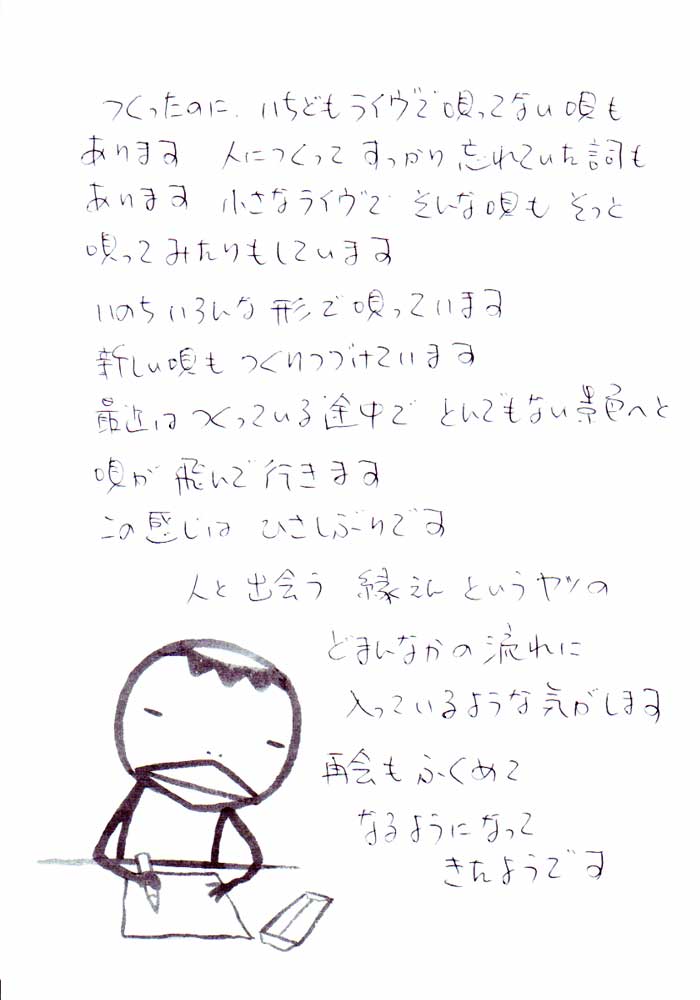 つくったのに、いちどもライヴで唄ってない唄も
あります　人につくって すっかり 忘れていた詞も
あります　小さなライヴで そんな唄も そっと
唄ってみたりもしています
いのち いろんな 形で 唄っています
新しい唄も つくりつづけています
最近は つくっている 途中で とんでもない 景色へと
唄が 飛んで 行きます
この 感じは ひさしぶりです
人と 出会う 縁えん というヤツの
どまんなかの 流れに
入っているような 気がします
再会も ふくめて
なるようになって
きたようです